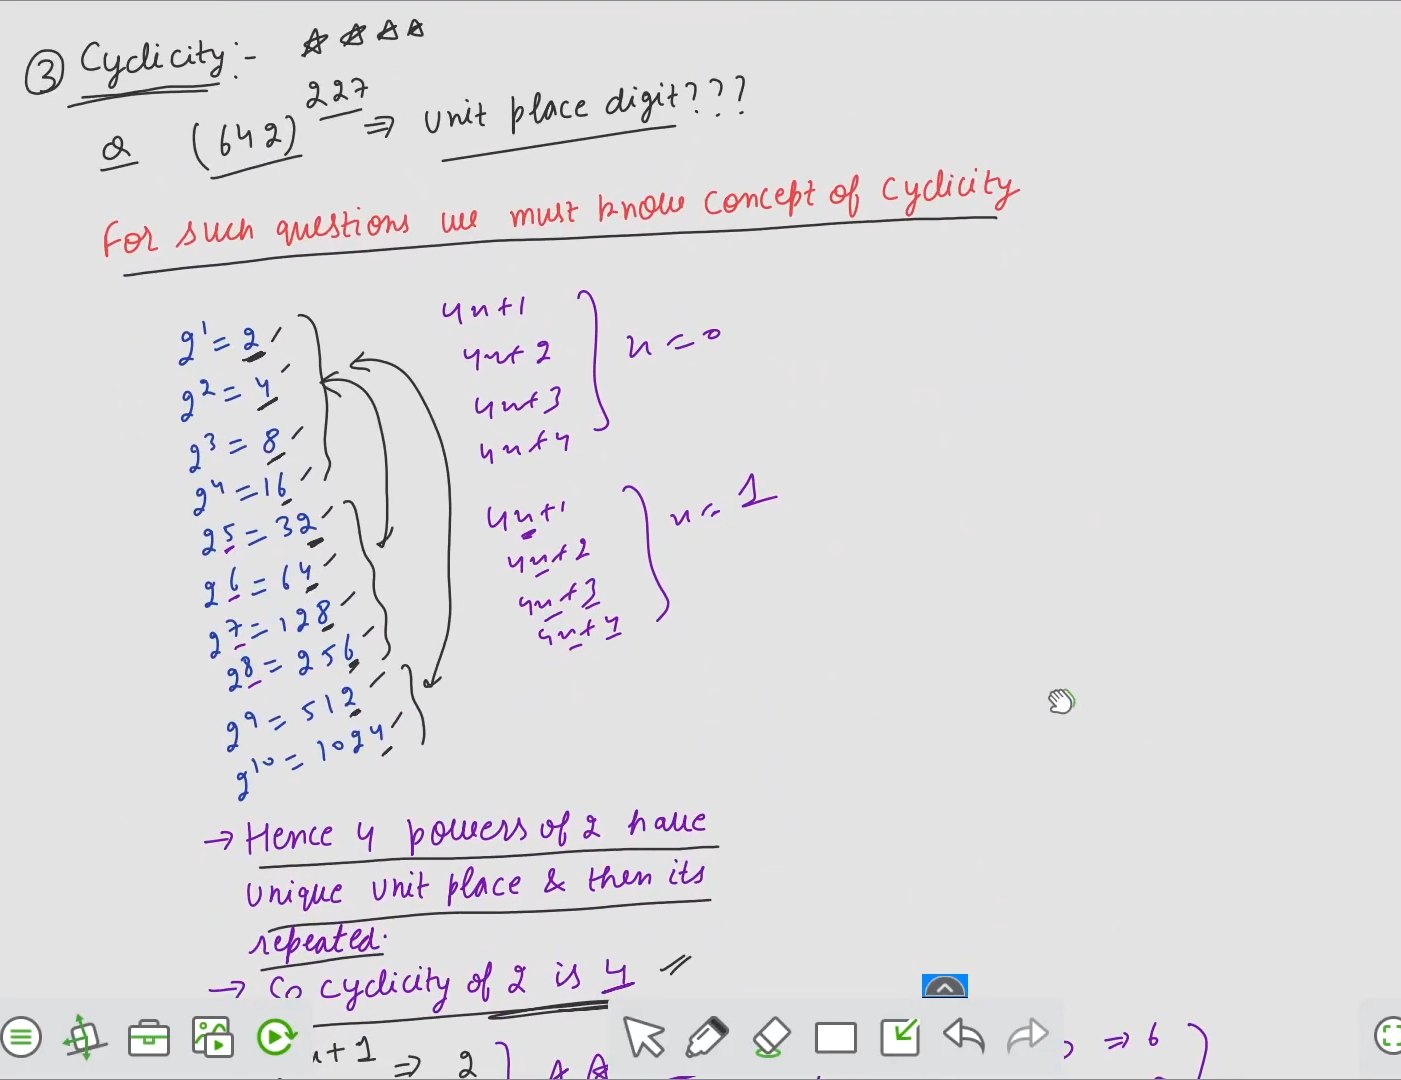 ③ Cyclicity:- ☆ ☆ ☆ ☆
Q (642)^227 ⇒ unit place digit???
For such questions we must know concept of cyclicity
2^1 = 2
2^2 = 4
2^3 = 8
2^4 = 16
2^5 = 32
2^6 = 64
2^7 = 128
2^8 = 256
2^9 = 512
2^10 = 1024
4n+1
4n+2
4n+3
4n+4
n=0
4n+1
4n+2
4n+3
4n+4
n= 1
→ Hence 4 powers of 2 have
unique unit place & then its
repeated.
→ So cyclicity of 2 is 4
+1 ⇒ 2
⇒ 6